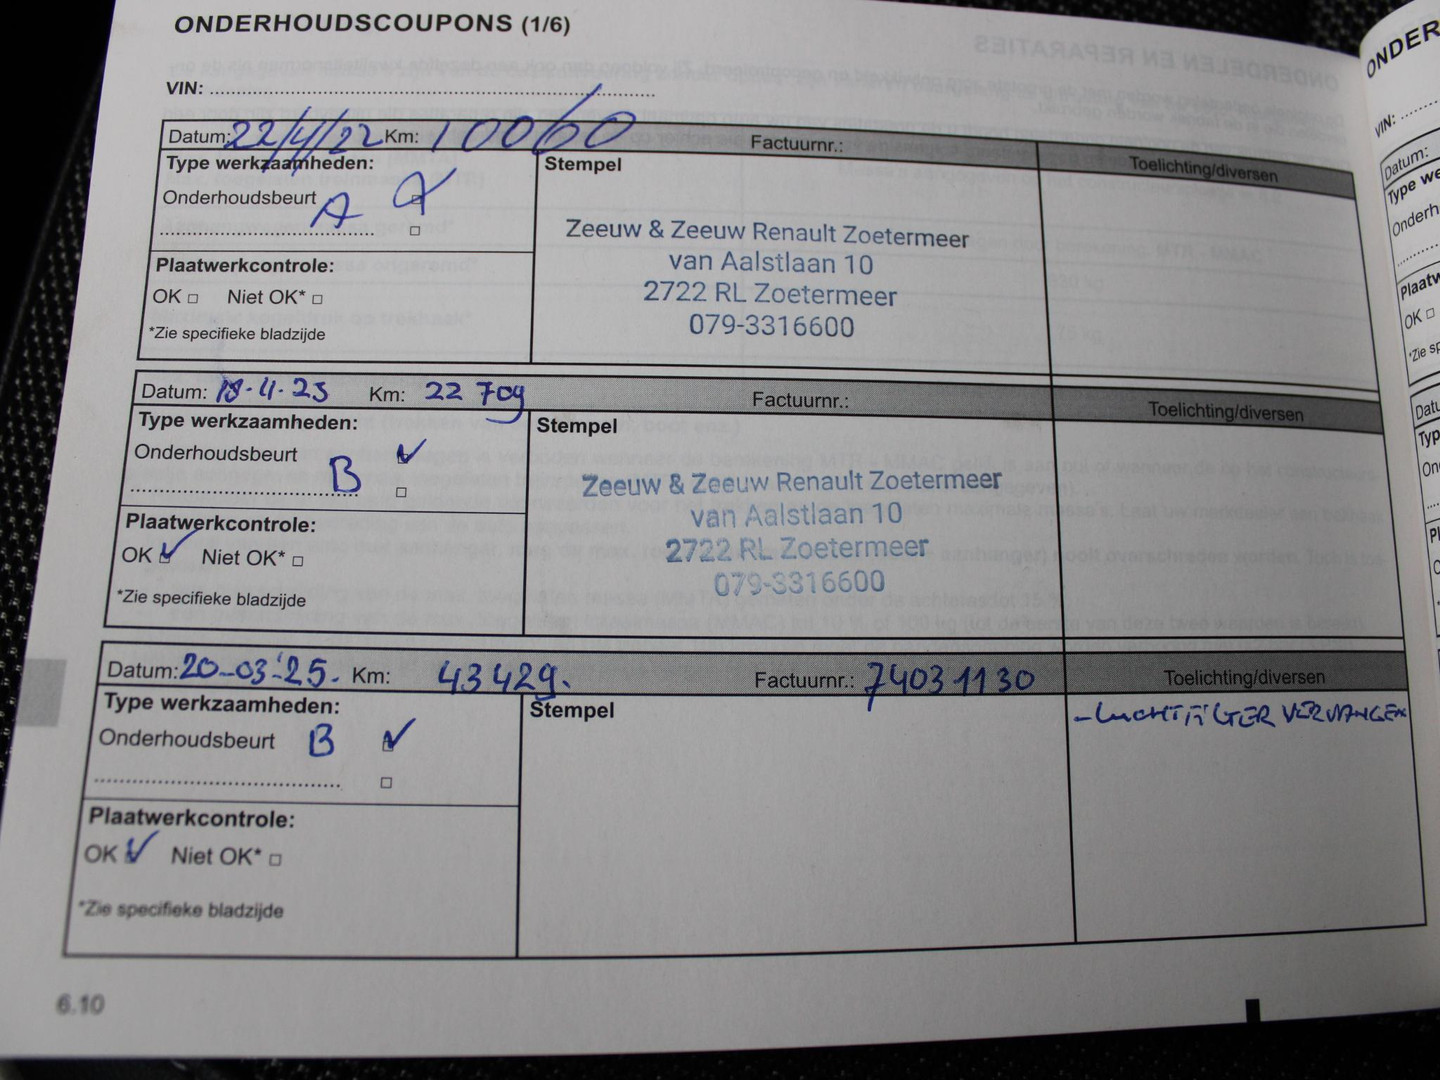 ONDERHOUDSCOUPONS (1/6)
VIN:
Datum: 22/4/22 Km: 10060 Factuurnr.: Toelichting/diversen
Type werkzaamheden: Stempel
Onderhoudsbeurt A
Zeeuw & Zeeuw Renault Zoetermeer
van Aalstlaan 10
2722 RL Zoetermeer
079-3316600
Plaatwerkcontrole:
OK □ Niet OK* □
*Zie specifieke bladzijde
Datum: 18-4-23 Km: 22 709 Factuurnr.: Toelichting/diversen
Type werkzaamheden: Stempel
Onderhoudsbeurt B
Zeeuw & Zeeuw Renault Zoetermeer
van Aalstlaan 10
2722 RL Zoetermeer
079-3316600
Plaatwerkcontrole:
OK Niet OK* □
*Zie specifieke bladzijde
Datum: 20-03-'25. Km: 43429. Factuurnr.: 74031130 Toelichting/diversen
Type werkzaamheden: Stempel
- LUCHTFILTER VERVANGEN
Onderhoudsbeurt B
Plaatwerkcontrole:
OK Niet OK* □
*Zie specifieke bladzijde
6.10
ONDER
VIN:
Datum:
Type we
Onderh
Plaatw
OK □